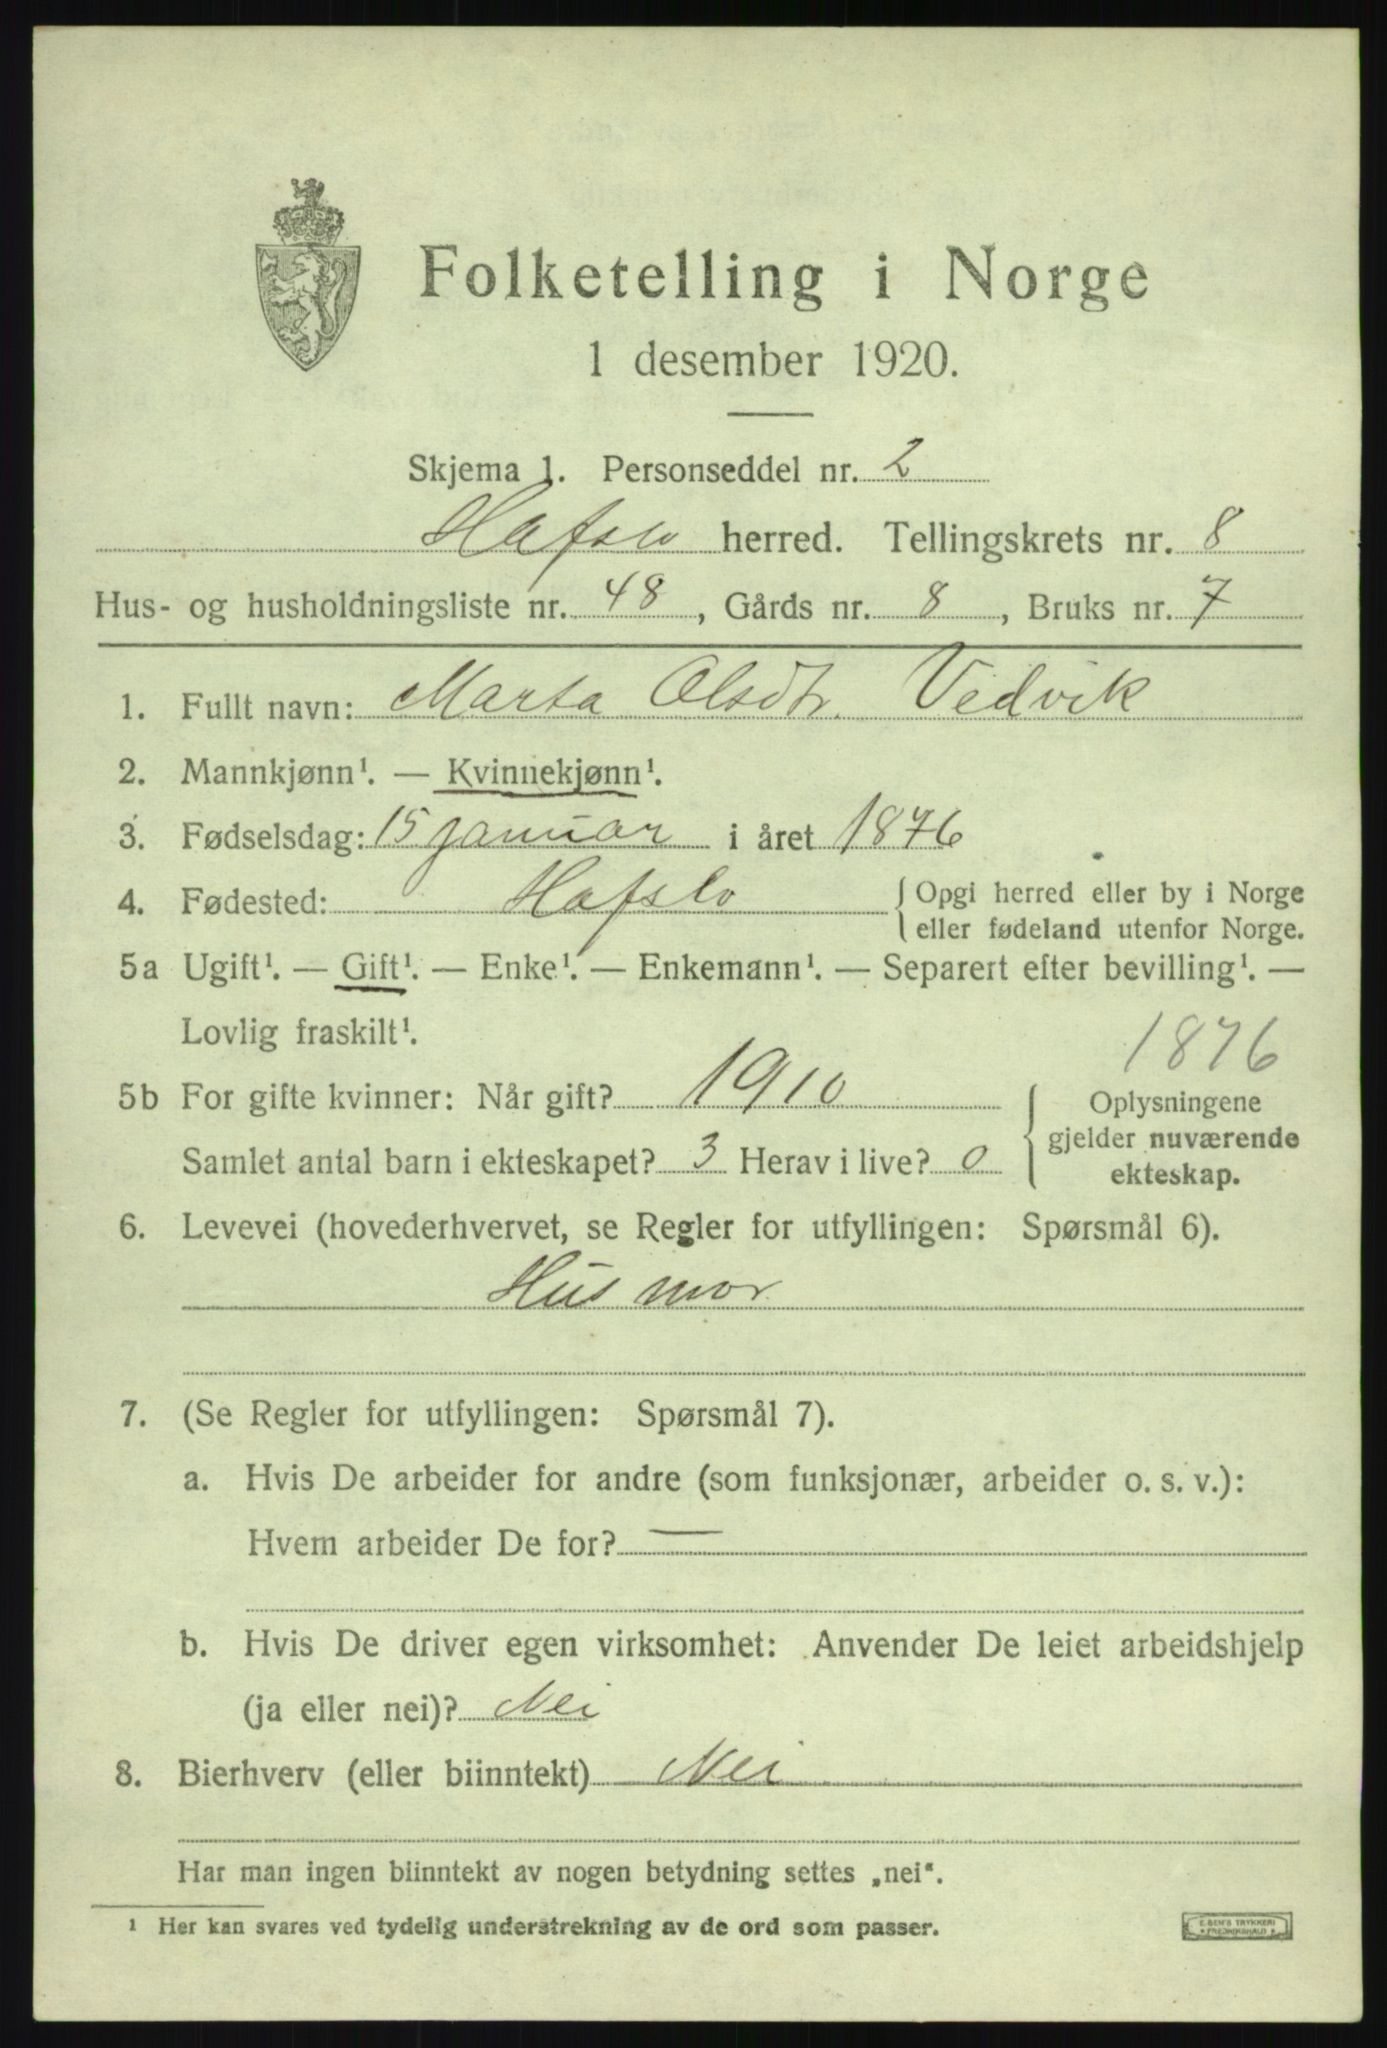 Folketelling i Norge
1 desember 1920.
Skjema 1. Personseddel nr. 2
Hafslo herred. Tellingskrets nr. 8
Hus- og husholdningsliste nr. 48, Gårds nr. 8, Bruks nr. 7
1. Fullt navn: Marta Olsdtr. Vedvik
2. Mannkjønn¹. — Kvinnekjønn¹.
3. Fødselsdag: 15 januar i året 1876
4. Fødested: Hafslo { Opgi herred eller by i Norge
eller fødeland utenfor Norge.
5a Ugift¹. — Gift¹. — Enke¹. — Enkemann¹. — Separert efter bevilling¹. —
Lovlig fraskilt¹.
1876
5b For gifte kvinner: Når gift? 1910
Samlet antal barn i ekteskapet? 3 Herav i live? 0
{ Oplysningene
gjelder nuværende
ekteskap.
6. Levevei (hovederhvervet, se Regler for utfyllingen: Spørsmål 6).
Husmor
7. (Se Regler for utfyllingen: Spørsmål 7).
a. Hvis De arbeider for andre (som funksjonær, arbeider o. s. v.):
Hvem arbeider De for? —
b. Hvis De driver egen virksomhet: Anvender De leiet arbeidshjelp
(ja eller nei)? Nei
8. Bierhverv (eller biinntekt) Nei
Har man ingen biinntekt av nogen betydning settes „nei“.
¹ Her kan svares ved tydelig understrekning av de ord som passer.
E. SEM'S TRYKKERI
FREDRIKSHALD